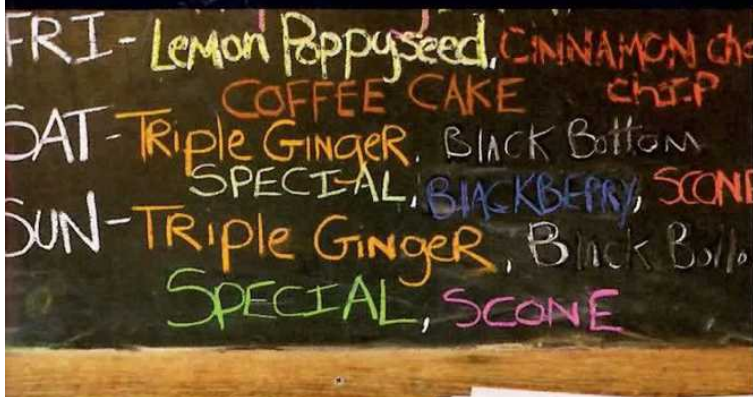 FRI- Lemon Poppyseed, CINNAMON ch
COFFEE CAKE chIP
SAT- TRiple GiNgeR, BlACK Bottom
SPECIAL, BlACKBERRY, SCONE
SUN- TRiple GiNgeR, Black Botto
SPECIAL, SCONE